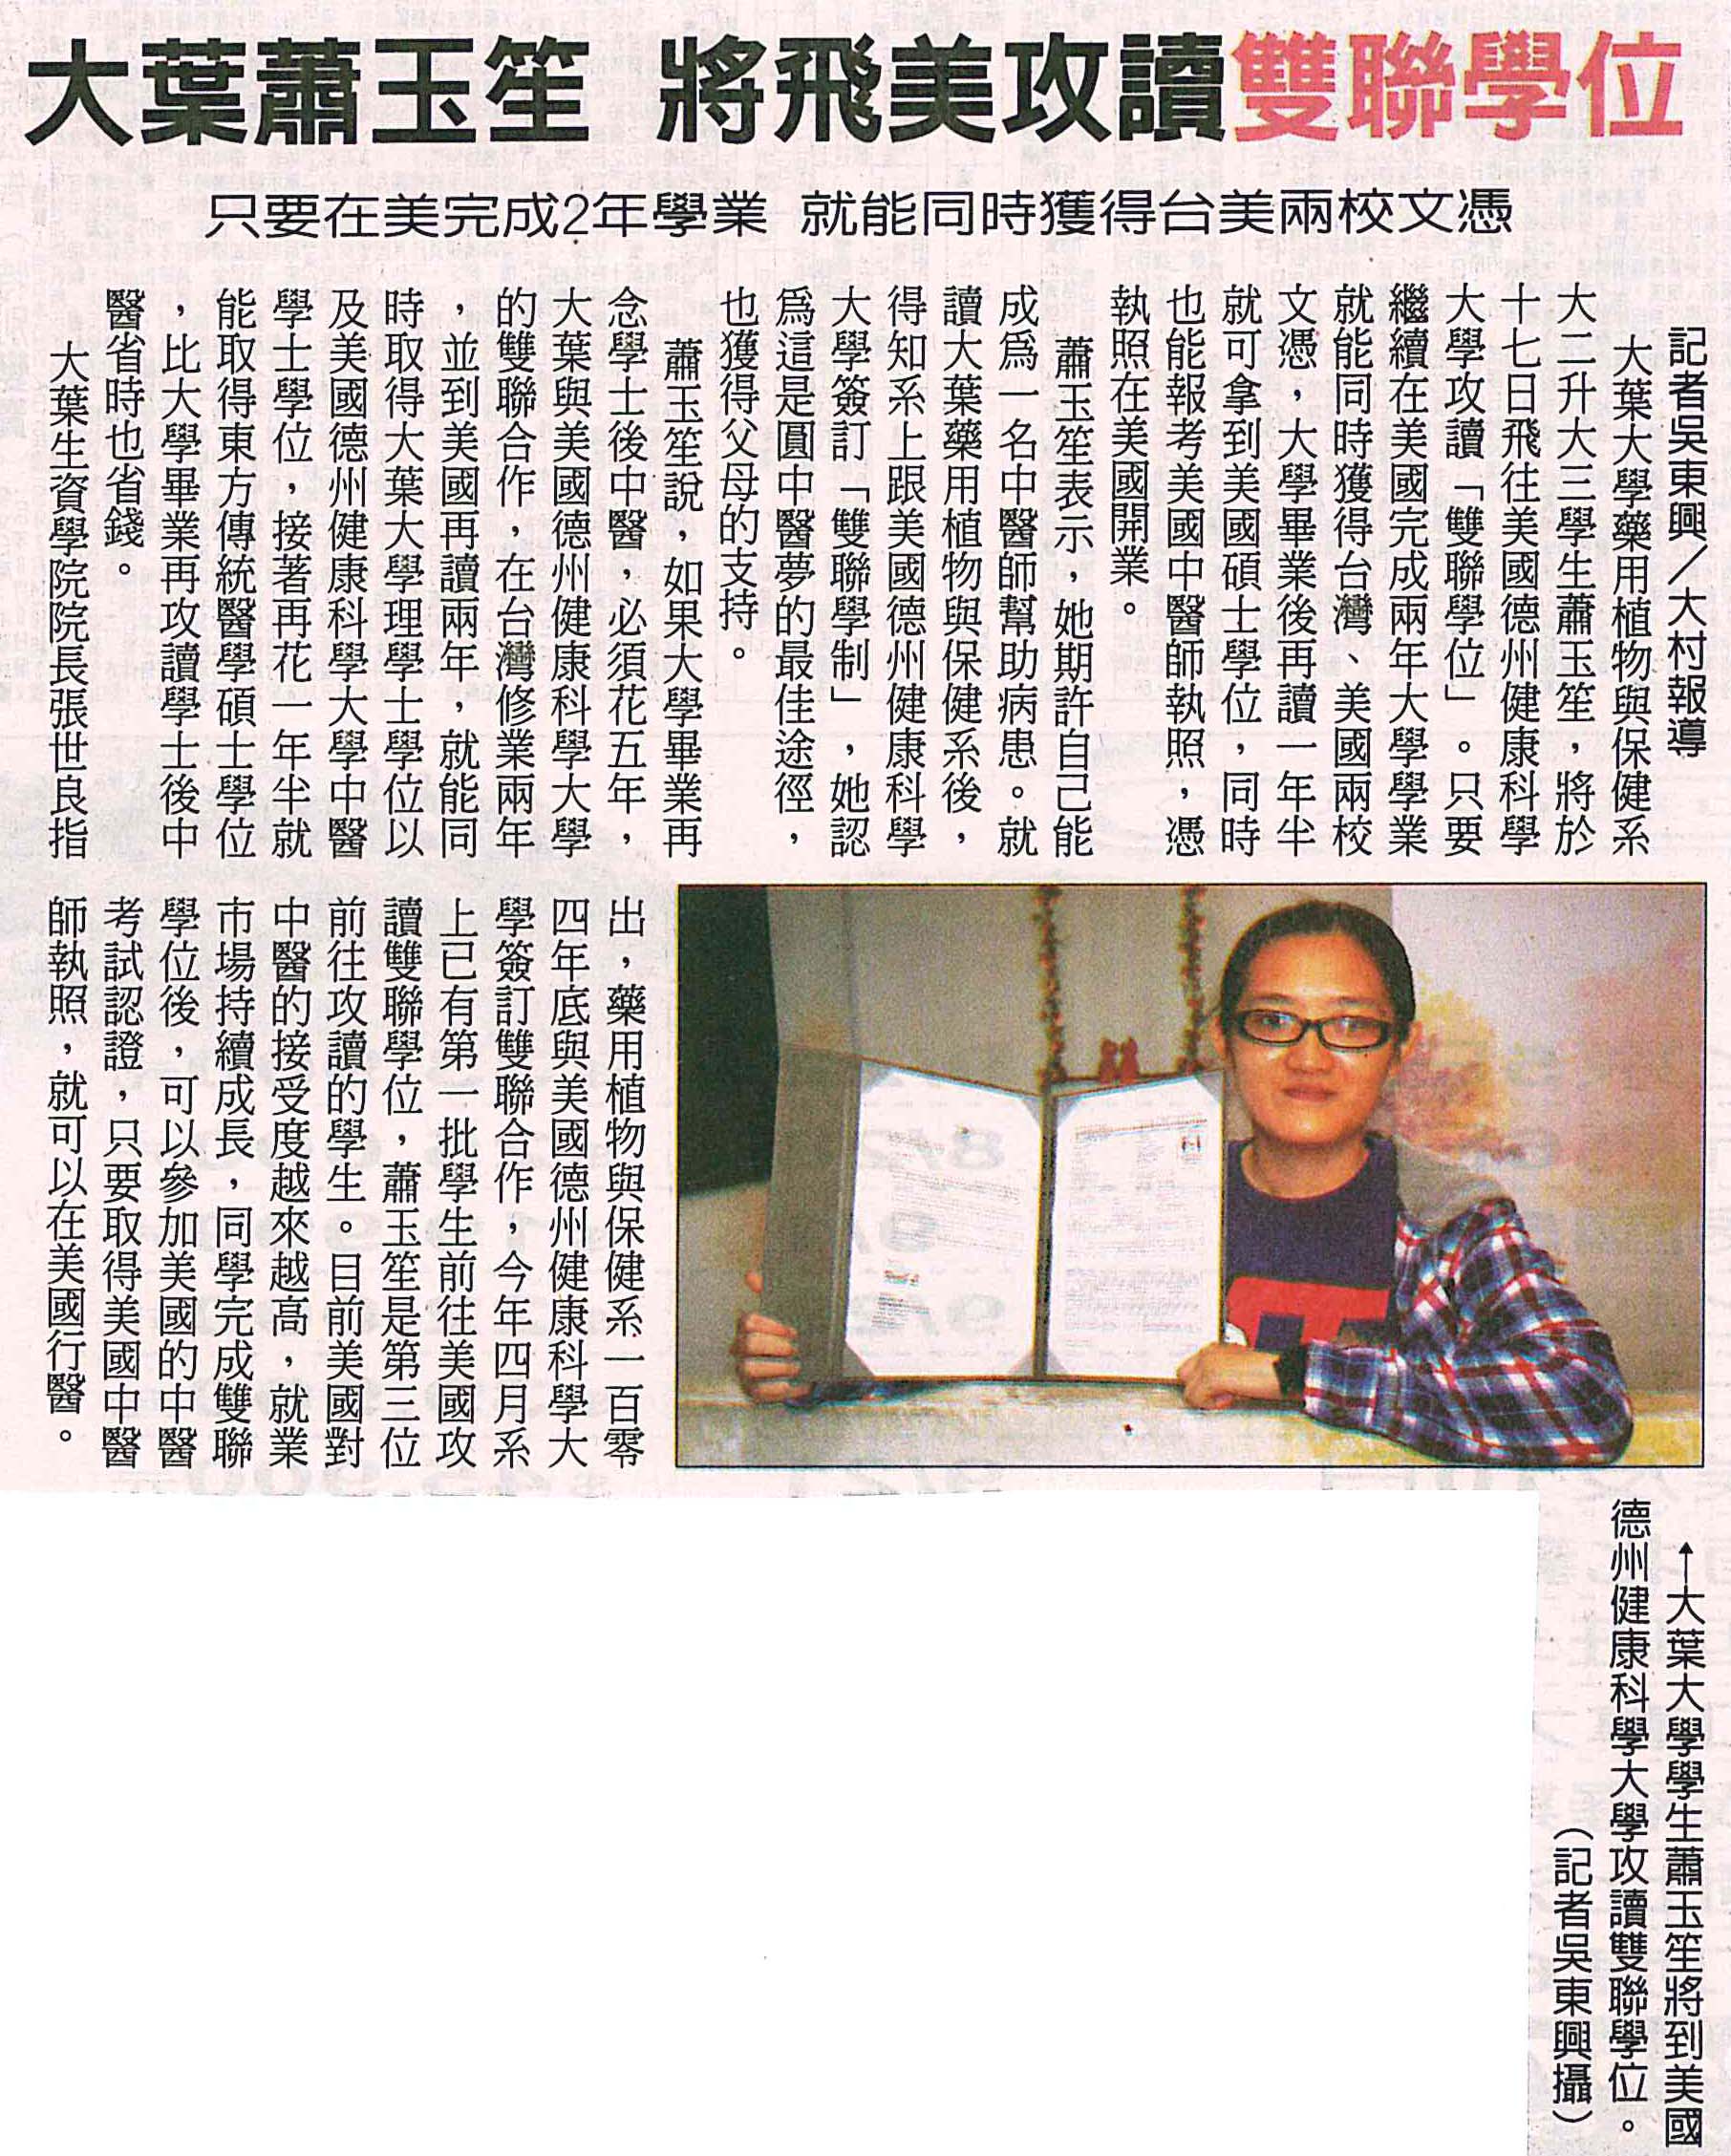 大葉蕭玉笙 將飛美攻讀雙聯學位
只要在美完成2年學業 就能同時獲得台美兩校文憑
記者吳東興／大村報導
大葉大學藥用植物與保健系
大二升大三學生蕭玉笙，將於
十七日飛往美國德州健康科學
大學攻讀「雙聯學位」。只要
繼續在美國完成兩年大學學業
就能同時獲得台灣、美國兩校
文憑，大學畢業後再讀一年半
就可拿到美國碩士學位，同時
也能報考美國中醫師執照，憑
執照在美國開業。
蕭玉笙表示，她期許自己能
成為一名中醫師幫助病患。就
讀大葉藥用植物與保健系後，
得知系上跟美國德州健康科學
大學簽訂「雙聯學制」，她認
為這是圓中醫夢的最佳途徑，
也獲得父母的支持。
蕭玉笙說，如果大學畢業再
念學士後中醫，必須花五年，
大葉與美國德州健康科學大學
的雙聯合作，在台灣修業兩年
，並到美國再讀兩年，就能同
時取得大葉大學理學士學位以
及美國德州健康科學大學中醫
學士學位，接著再花一年半就
能取得東方傳統醫學碩士學位
，比大學畢業再攻讀學士後中
醫省時也省錢。
大葉生資學院院長張世良指
出，藥用植物與保健系一百零
四年底與美國德州健康科學大
學簽訂雙聯合作，今年四月系
上已有第一批學生前往美國攻
讀雙聯學位，蕭玉笙是第三位
前往攻讀的學生。目前美國對
中醫的接受度越來越高，就業
市場持續成長，同學完成雙聯
學位後，可以參加美國的中醫
考試認證，只要取得美國中醫
師執照，就可以在美國行醫。
↑大葉大學學生蕭玉笙將到美國
德州健康科學大學攻讀雙聯學位。
（記者吳東興攝）